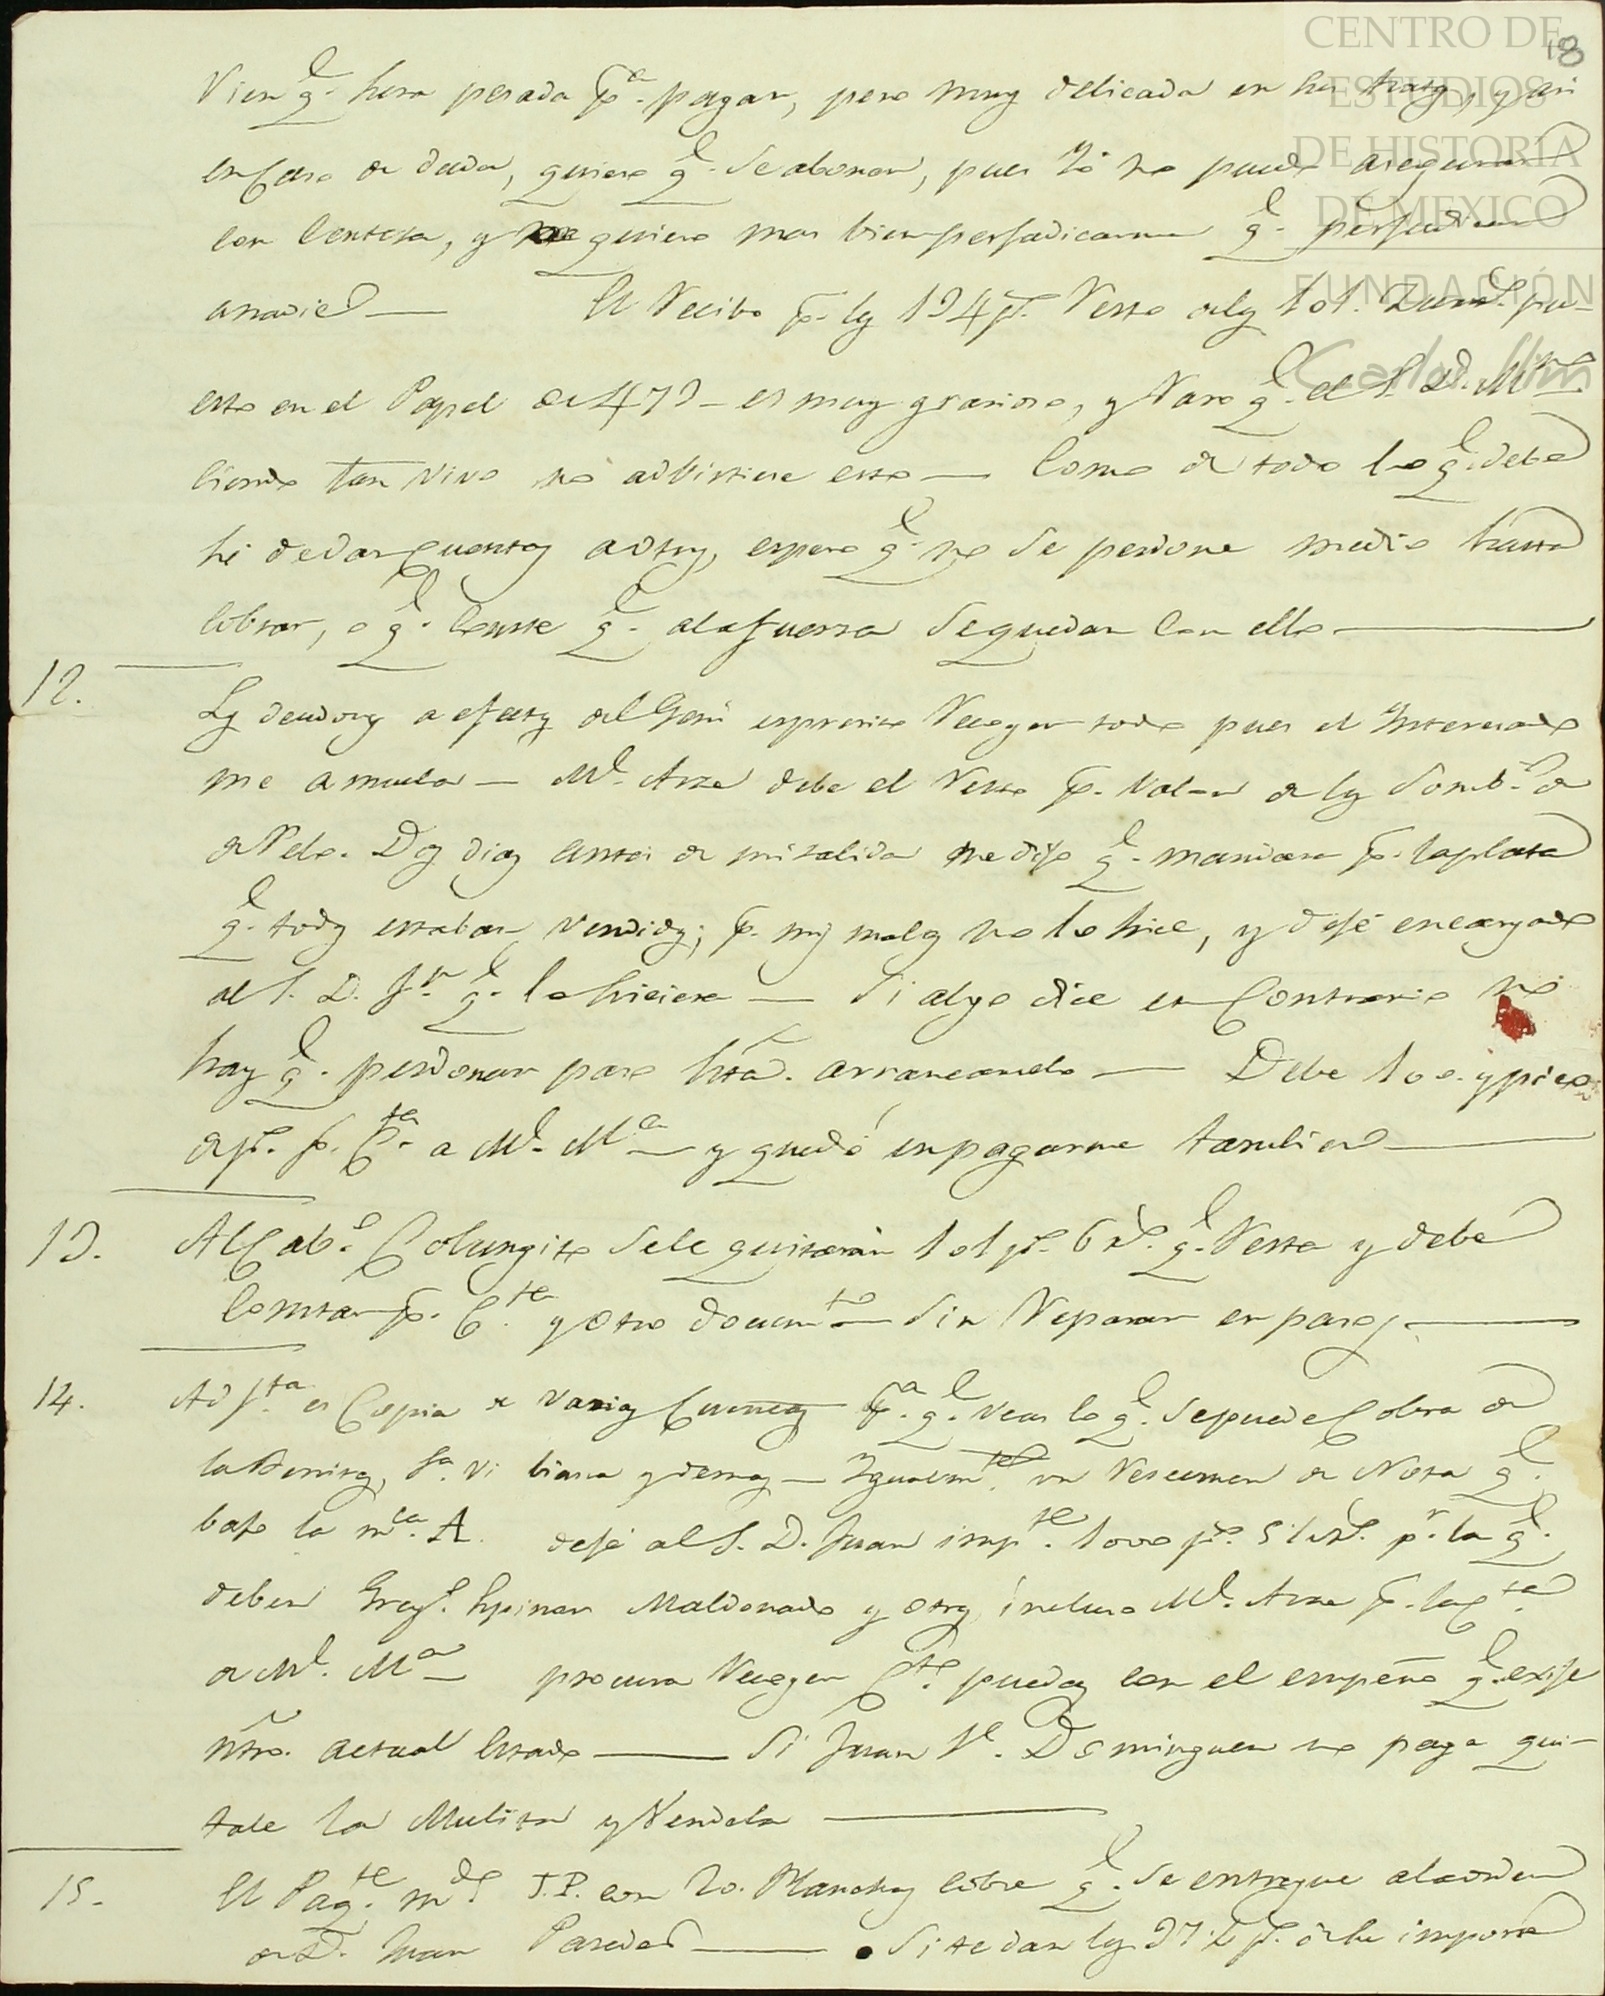 CENTRO DE
ESTUDIOS
DE HISTORIA
DE MEXICO
FUNDACIÓN
Carlos Slim
18
Vien q.e fuera pesada p.a pagar, pero muy delicada en sus tratos, y asi
en Caso de duda, quiero q.e se abonen, pues Yo no puedo asegurar
con Certesa, y quiero mas bien perjudicarme q.e perjudicar
anadie — El Recibo p.r los 194 p.s Resto de los 101. pu-
esto en el Papel de 479 — es muy grasioso, y Raro q.e el S. D. M.no
siendo tan vivo no advirtiese esto — Como de todo lo q.e debe
hé de dar Cuentas a otros, espero q.e no se perdone medio hasta
cobrar, o q.e Conste q.e ala fuerza se quedan con ello —
12. Los deudores a efectos del Gen.l es preciso Recoger todo pues el Interesado
me amuela — M.l Arze debe el Resto p.r Valor de los Somb.s de
de Pelo. Dos dias antes de mi salida me dijo q.e mandara p.r la plata
q.e todos estaban vendidos; p.r mis males no lo hice, y dejé encargado
al S. D. J.n q.e lo hiciera — Si algo dice en Contrario no
hay q.e perdonar paso hta. arrancarselo — Debe 100. y pico
de p.s p.r C.ta a M.l M.a — y quedó en pagarme tambien —
13. Al Cab.o Colungita se le quitarán 101 p.s 6 r.s q.e Resta y debe
Constar p.r C.ta y otro docum.to — Sin Reparar en pasos —
14. Adj.ta es Copia de varias Cuentas p.a q.e Veas lo q.e se puede Cobrar de
la S.a Vi biana y demas — Igualm.te un Resumen de Nota q.e
bajo la m.ca A. dejé al S. D. Juan imp.te 1000 p.s 5 1/2 r.s p.r la q.e
deben Grac.s Espinosa Maldonado y otros, incluso M.l Arze p.r la C.ta
de M.l M.a — procura Recoger C.to puedas con el empeño q.e exije
ntro. actual Estado — Si Juan J.e Dominguez no paga qui-
tale la Mulita y Vendela —
15. El Paq.te m.do J.P. con 20. Planchas cobre q.e se entregue ala orden
de D. Juan Paredes — Si te dan los 37 1/2 p.s de su importe